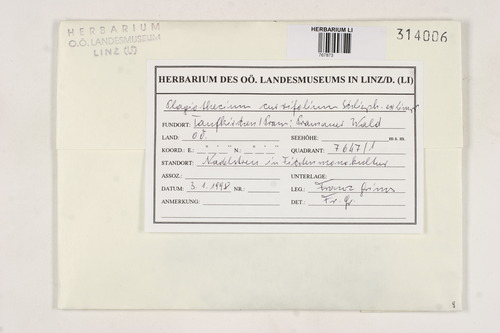 HERBARIUM
O.Ö. LANDESMUSEUM
LINZ (LI)
HERBARIUM LI
767873
314006
HERBARIUM DES OÖ. LANDESMUSEUMS IN LINZ/D. (LI)
Plagiothecium curvifolium Schlieph. ex Limpr.
FUNDORT: Taufkirchen/Pram: Pramauer Wald
LAND: OÖ. SEEHÖHE: m s. m.
KOORD.: E.: ° ' " N.: ° ' " QUADRANT: 7647/1
STANDORT: Nadelstreu in Fichtenmonokultur
ASSOZ.: UNTERLAGE:
DATUM: 3.1.1998 NR.: LEG.: Franz Grims
ANMERKUNG: DET.: Fr. Gr.